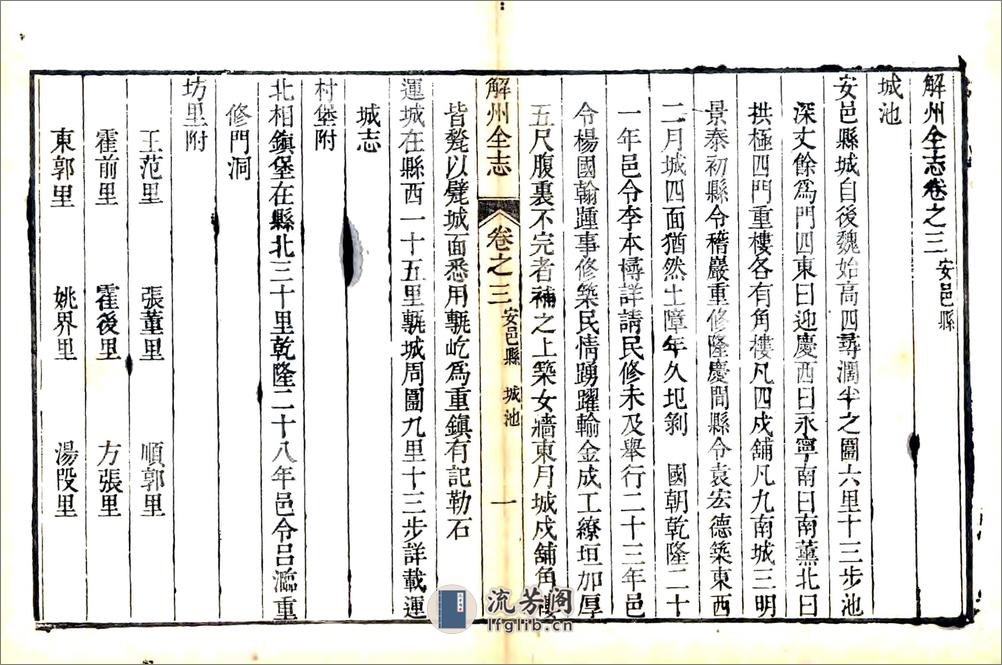 解州全志卷之三 安邑縣
城池
安邑縣城自後魏始高四尋濶半之圍六里十三步池
深丈餘爲門四東曰迎慶西曰永寧南曰南薰北曰
拱極四門重樓各有角樓凡四戍舖凡九南城三明
景泰初縣令稽嚴重修隆慶間縣令袁宏德築東西
二月城四面猶然土障年久圮剝 國朝乾隆二十
一年邑令李本㯙詳請民修未及舉行二十三年邑
令楊國翰踵事修築民情踴躍輸金成工繚垣加厚
五尺腹裏不完者補之上築女牆東月城戍舖角樓
解州全志 卷之三 安邑縣 城池 一
皆甃以甓城面悉用甎屹爲重鎮有記勒石
運城在縣西一十五里甎城周圍九里十三步詳載運
城志
村堡附
北相鎮堡在縣北三十里乾隆二十八年邑令呂瀶重
修門洞
坊里附
王范里 張董里 順郭里
霍前里 霍後里 方張里
東郭里 姚界里 湯段里
流芳閣
lfglib.cn